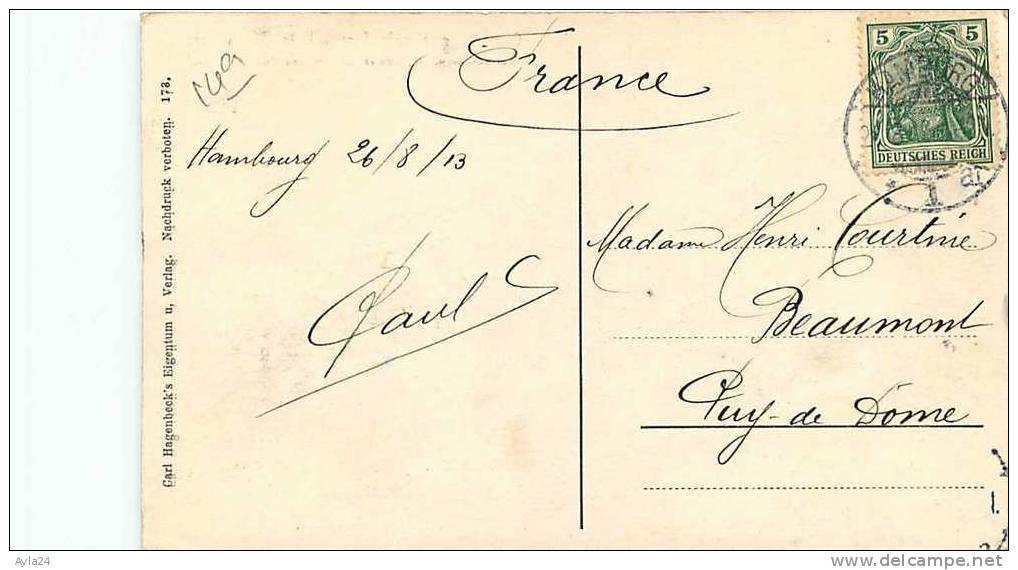 France
149
Hambourg 26/8/13
Paul
Madame Henri Courtine
Beaumont
Puy-de Dome
Carl Hagenbeck's Eigentum u, Verlag. Nachdruck verboten. 173.
5 5
DEUTSCHES REICH
HAMBURG
1 ar
Ayla24
delcampe.net